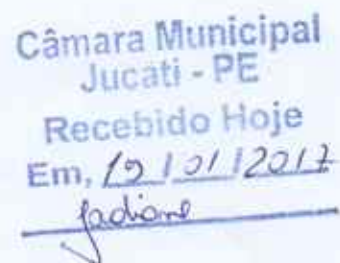 Câmara Municipal
Jucati - PE
Recebido Hoje
Em, 19 / 01 / 2017
Jadiane